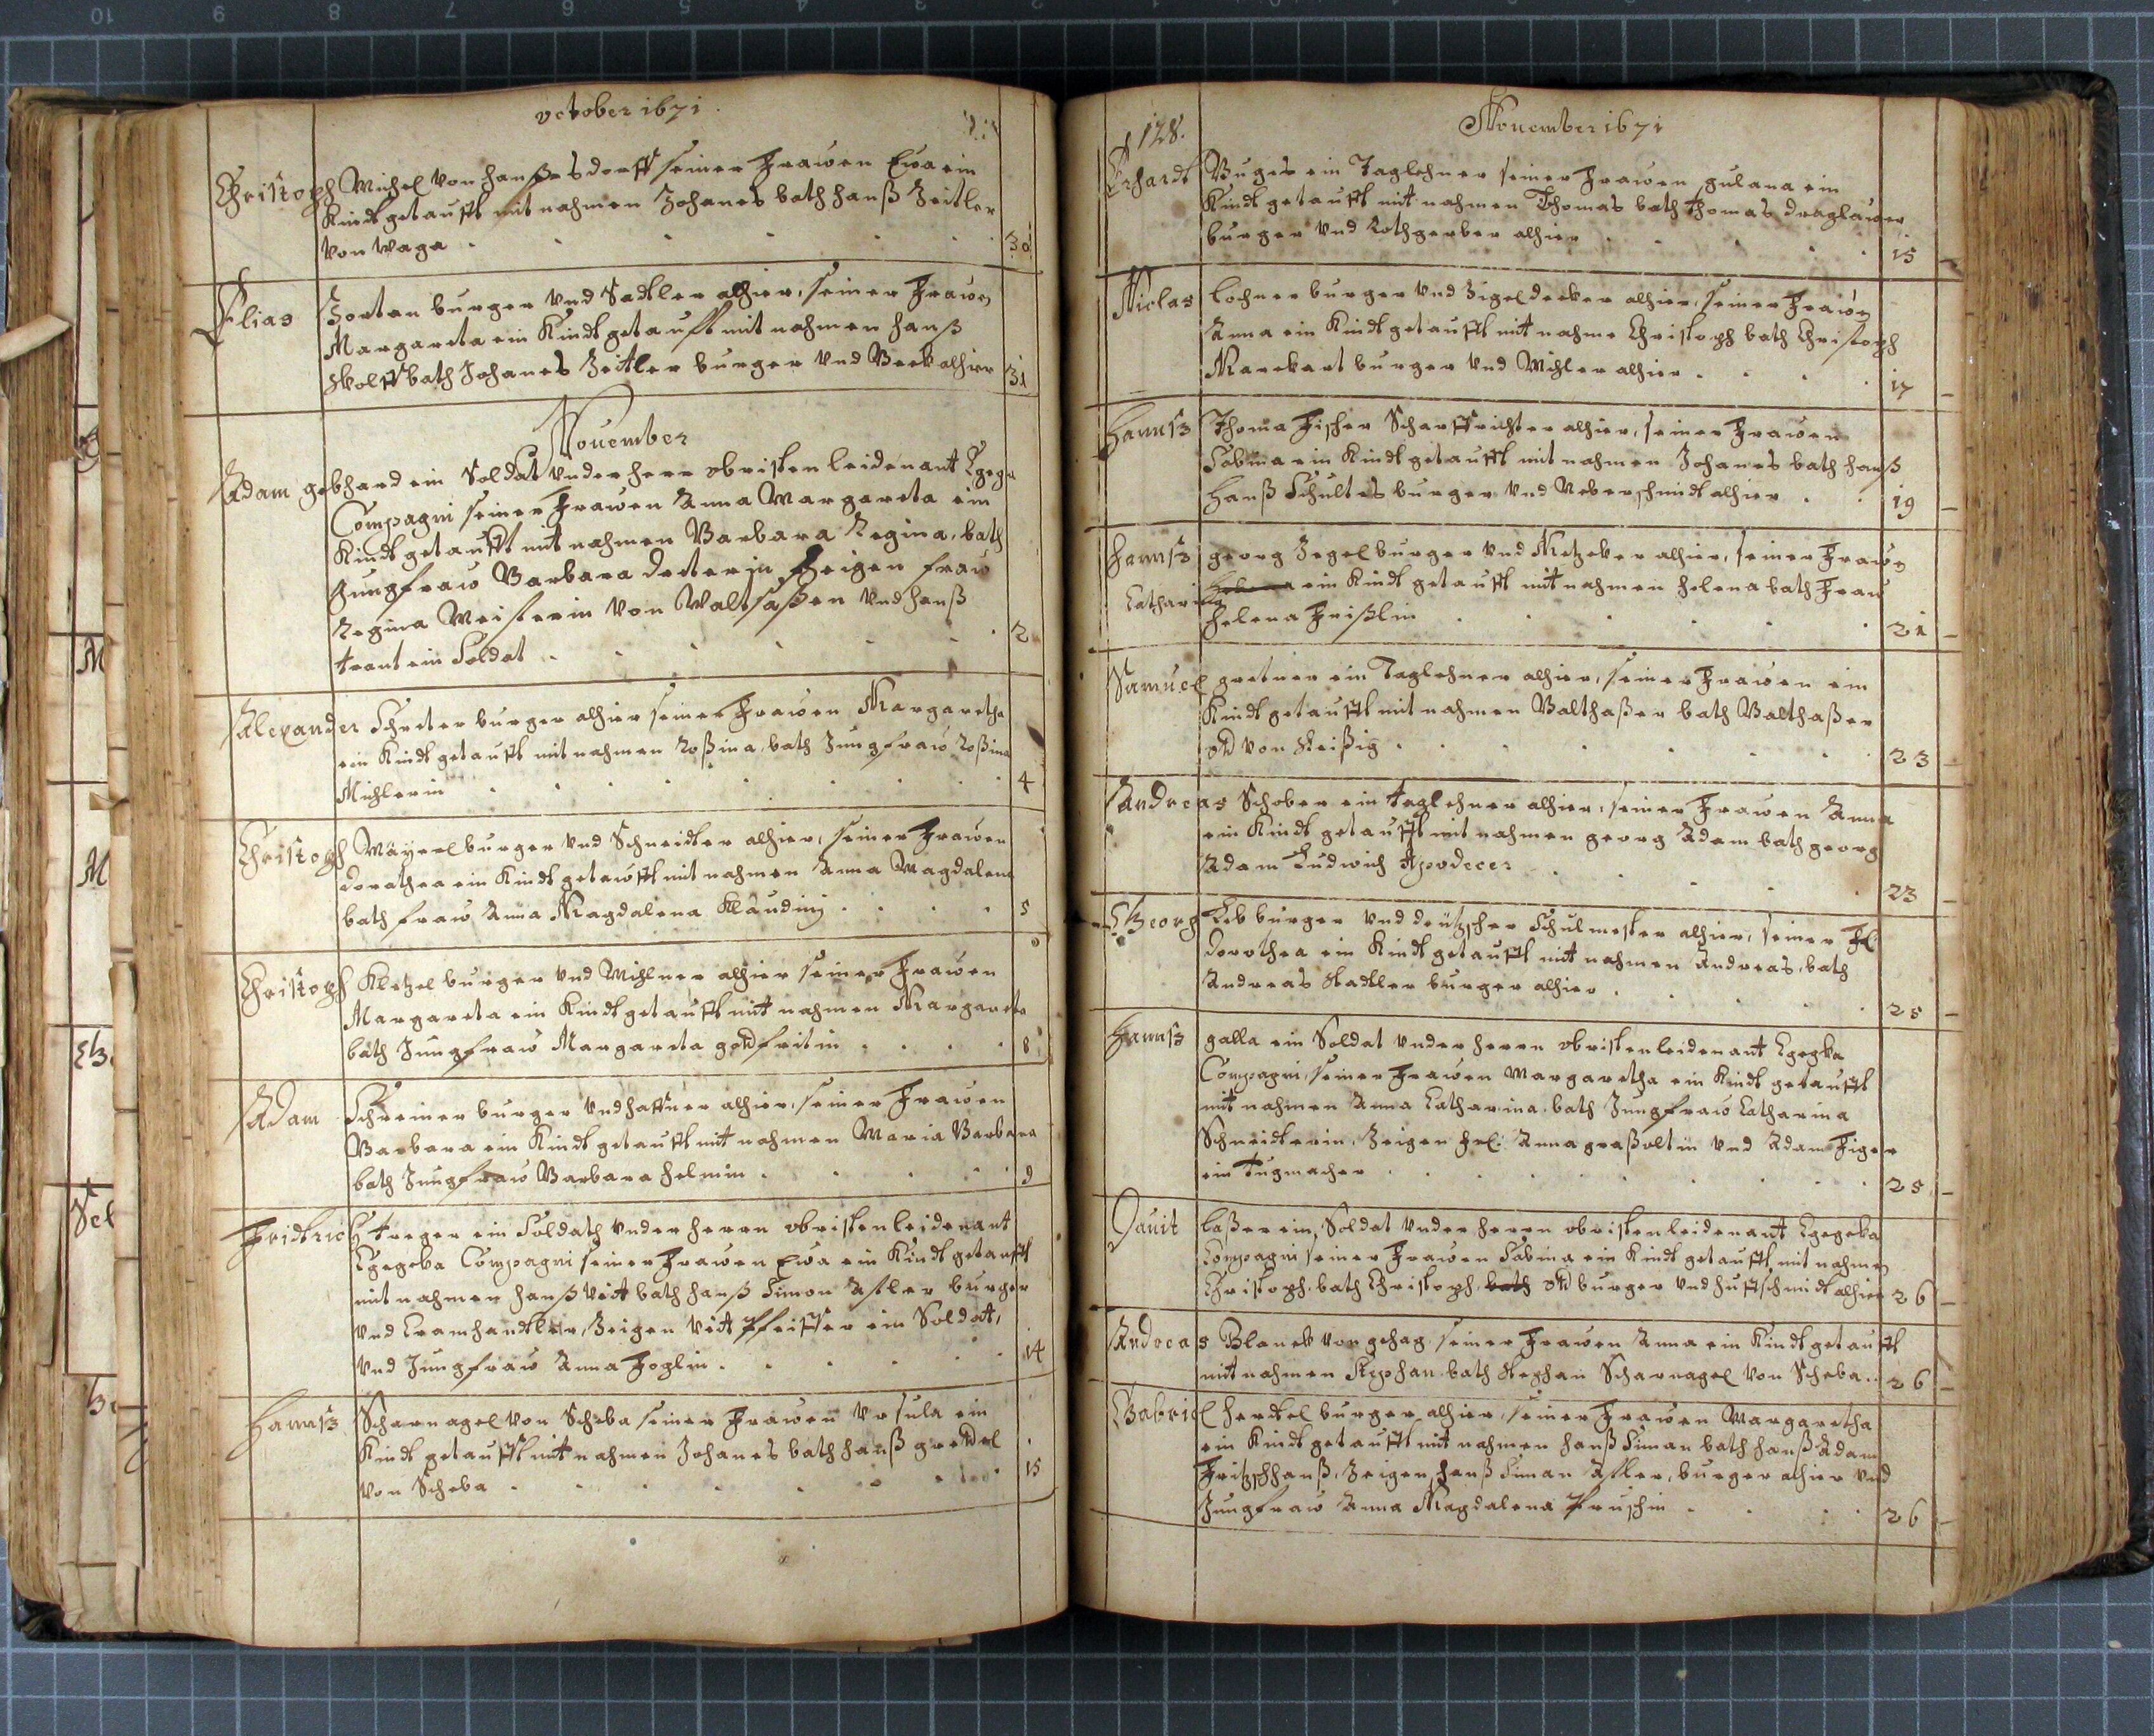 october 1671
Christoph Michel von hanßesdorff seiner Frawen Eva ein
Kindt getaufft mit nahmen Johanes bath hanß Zeitler
von Waga 30
Elias burger vnd Sadtler alhier, seiner Frawen
Margareta ein Kindt getaufft mit nahmen hanß
Wolff bath Johanes Zeitler burger vnd Beck alhier 31
Nouember
Adam gebhard ein Soldat vnder herr obristen leidenant
Compagni seiner Frawen Anna Margareta ein
Kindt getaufft mit nahmen Barbara Regina, bath
Jungfraw Barbara Zeigen fraw
Regina Meisterin von Waltsaßen vnd hanß
trant ein Soldat 2
Alexander Schreter burger alhier seiner Frawen Margaretha
ein Kindt getaufft mit nahmen Roßina, bath Jungfraw Roßina
Michlerin 4
Christoph Mäyerl burger vnd Schneidter alhier, seiner Frawen
Dorathea ein Kindt getawfft mit nahmen Anna Magdalena
bath fraw Anna Magdalena Klaudinj 5
Christoph Kletzel burger vnd Mihlner alhier seiner Frawen
Margareta ein Kindt getaufft mit nahmen Margareta
bath Jungfraw Margareta gottfritin 8
Adam Schreiner burger vnd haffner alhier, seiner Frawen
Barbara ein Kindt getaufft mit nahmen Maria Barbara
bath Jungfraw Barbara helmin 9
Fridtrich treger ein Soldath vnder herrn obristenleidenant
Egegcka Compagni seiner Frawen Eva ein Kindt getaufft
mit nahmen hanß Veit bath hanß Simon Aster burger
vnd Cramhandtler, Zeigen Veit Pfeiffer ein Soldat,
vnd Jungfraw Anna Foglin 14
Hannß Scharnagel von Scheba seiner Frawen Vrsula ein
Kindt getaufft mit nahmen Johanes bath hanß gredel
von Scheba 15
128.
Nouember 1671
Erhardt Buges ein Taglehner seiner Frawen ein
Kindt getaufft mit nahmen Thomas bath thomas draglawer
burger vnd Rothgerber alhier 15
Niclas lochner burger vnd Zigeldecker alhier, seiner Frawen
Anna ein Kindt getaufft mit nahme Christoph bath Christoph
Marckart burger vnd Mihler alhier 17
Hannß Thoma Fischer Scharffrichter alhier, seiner Frawen
Sabina ein Kindt getaufft mit nahmen Johanes bath hanß
Hanß Schultes burger vnd Neberschmidt alhier 19
Hannß georg Zegel burger vnd Metzcker alhier, seiner Frawen
Catharina ein Kindt getaufft mit nahmen helena bath Fraw
helena Frißlin 21
Samuel gretner ein Taglehner alhier, seiner Frawen ein
Kindt getaufft mit nahmen Balthaßer bath Balthaßer
ott von Reißig 23
Andreas Schober ein taglehner alhier, seiner Frawen Anna
ein Kindt getaufft mit nahmen georg Adam bath georg
Adam Ludwich Apodecer 23
Georg Leb burger vnd deützscher Schulmester alhier, seiner Fr:
Dorothea ein Kindt getaufft mit nahmen Andreas, bath
Andreas Stadtler burger alhier 25
Hannß galla ein Soldat vnder herrn obristenleidenant Egegka
Compagni, seiner Frawen Margaretha ein Kindt getaufft
mit nahmen Anna Catharina bath Jungfraw Catharina
Schneidterin, Zeigen Anna graßoltin vnd Adam Figer
ein tugmacher 25
Dauit laßer ein Soldat vnder herrn obristenleidenant Egegcka
Compagni seiner Frawen Sabina ein Kindt getaufft mit nahmen
Christoph, bath Christoph bath ott burger vnd huffschmidt alhier 26
Andreas Blanck von gehag seiner Frawen Anna ein Kindt getaufft
mit nahmen Stephan bath Stephan Scharnagel von Scheba 26
Gabriel herdtel burger alhier, seiner Frawen Margaretha
ein Kindt getaufft mit nahmen hanß Siman bath hanß Adam
Fritzschhanß, Zeigen hanß Siman Aster, burger alhier vnd
Jungfraw Anna Magdalena Fruschin 26